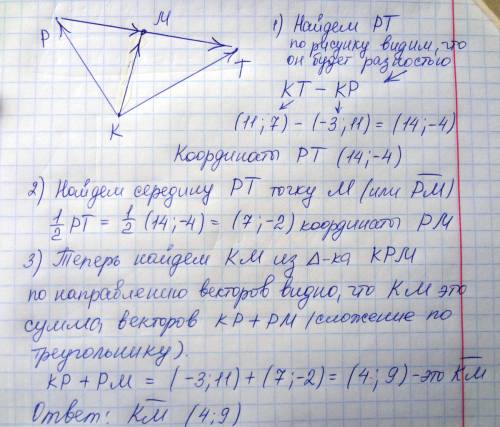 P
M
T
K
1) Найдем PT
по рисунку видим, что
он будет разностью
KT - KP
(11;7) - (-3;11) = (14;-4)
Координаты PT (14;-4)
2) Найдем середину PT точку M (или PM)
1/2 PT = 1/2 (14;-4) = (7;-2) координаты PM
3) Теперь найдем KM из Δ-ка KPM
по направлению векторов видно, что KM это
сумма векторов KP+PM (сложение по
треугольнику).
KP + PM = (-3;11) + (7;-2) = (4;9) - это KM
Ответ: KM (4;9)